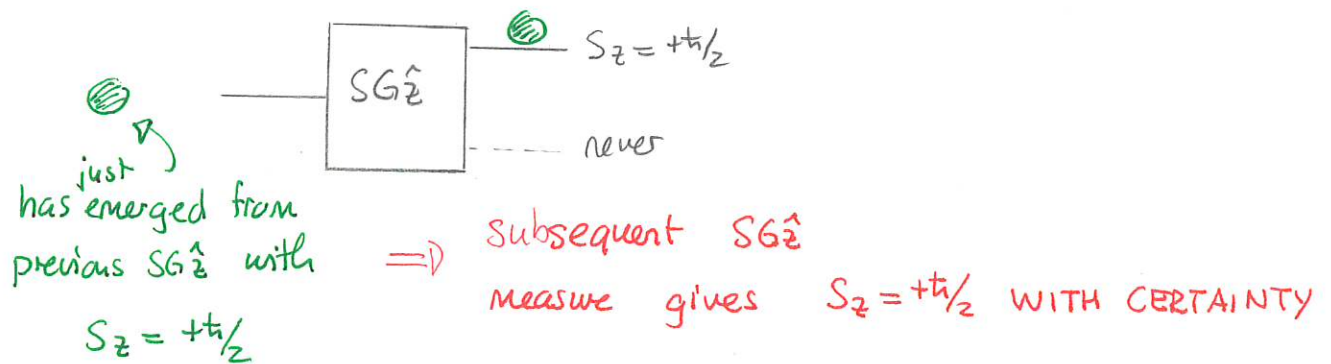 S_z = +ħ/2
SGẑ
never
just
has emerged from
previous SGẑ with
S_z = +ħ/2
⇒ subsequent SGẑ
measure gives S_z = +ħ/2 WITH CERTAINTY